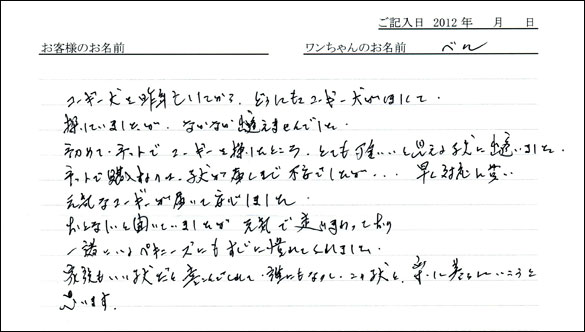 ご記入日 2012年 月 日
お客様のお名前 ワンちゃんのお名前 ベル
コーギー犬を昨年亡くしてから、どうしてもコーギー犬がほしくて、
探していましたが、なかなか逢えませんでした。
初めて、ネットでコーギーを探したところ、とても可愛いと思える子犬に逢いました。
ネットで購入するのは、子犬が届くまで不安でしたが... 早い対応と
元気なコーギーが届いて安心しました。
おとなしいと聞いていましたが元気で走りまわっており
一緒にいるペキニーズにもすぐに慣れてくれました。
家族もいい犬だと喜んでくれて、誰にもなつく、この犬と、楽しく暮らしていこうと
思います。